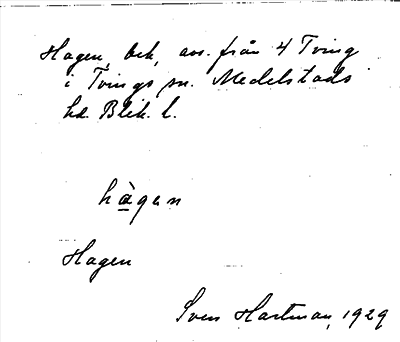 Hagen, bek, avs. från 4 Tving
i Tvings sn. Medelstads
hd. Blek. l.
hàgen
Hagen
Sven Hartman, 1929